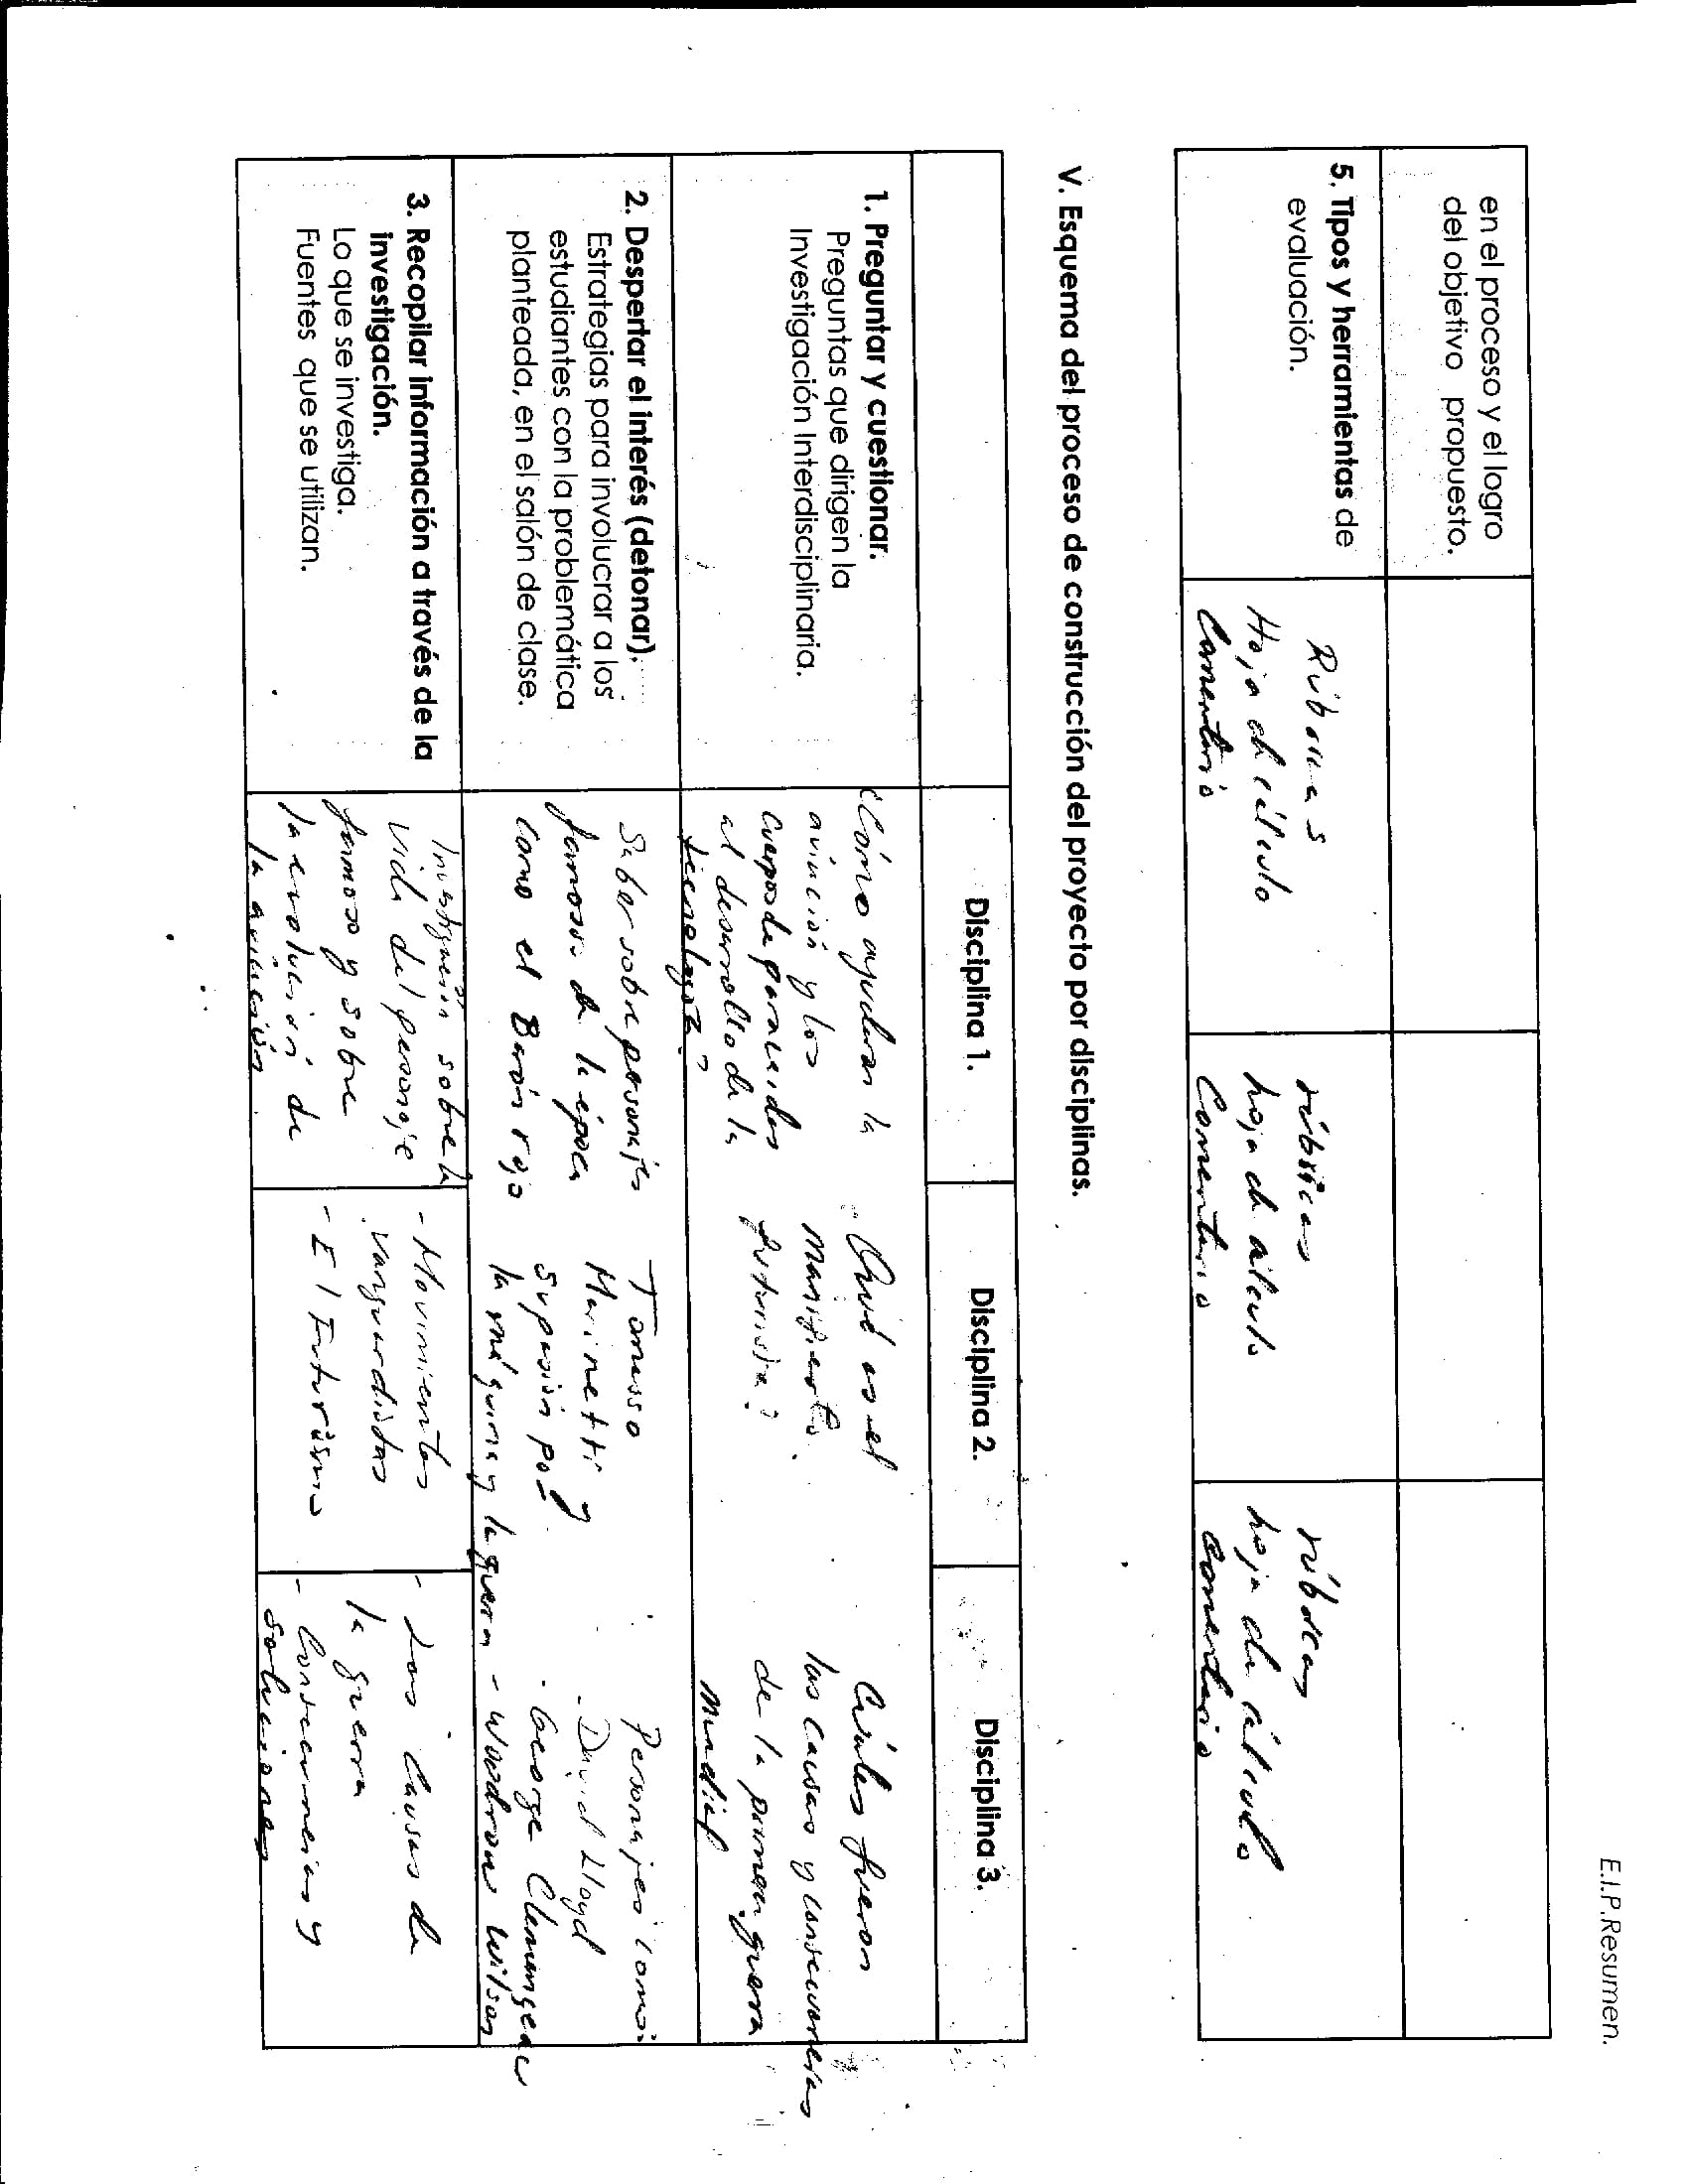 E.I.P.Resumen.
en el proceso y el logro
del objetivo propuesto.
5. Tipos y herramientas de
evaluación.
Rúbricas
Hoja de cálculo
Comentario
rúbricas
hoja de cálculo
Comentario
rúbricas
hoja de cálculo
comentario
V. Esquema del proceso de construcción del proyecto por disciplinas.
Disciplina 1.
Disciplina 2.
Disciplina 3.
1. Preguntar y cuestionar.
Preguntas que dirigen la
Investigación Interdisciplinaria.
¿Cómo ayudaron la
aviación y los
cuerpos de paracaidas
al desarrollo de la
tecnología?
¿Qué es el
manifiesto
futurista?
Cuáles fueron
las causas y consecuencias
de la primera guerra
mundial
2. Despertar el interés (detonar).
Estrategias para involucrar a los
estudiantes con la problemática
planteada, en el salón de clase.
Saber sobre personajes
famosos de la época
como el Barón rojo
Tomasso
Marinetti y
su pasión por
la máquina y la guerra
Personajes como:
- David Lloyd
- George Clemengeau
- Woodrow Wilson
3. Recopilar información a través de la
investigación.
Lo que se investiga.
Fuentes que se utilizan.
Investigación sobre la
vida del personaje
famoso y sobre
la evolución de
la aviación
- Movimientos
vanguardistas
- El Futurismo
- Las causas de
la guerra
- Consecuencias y
soluciones